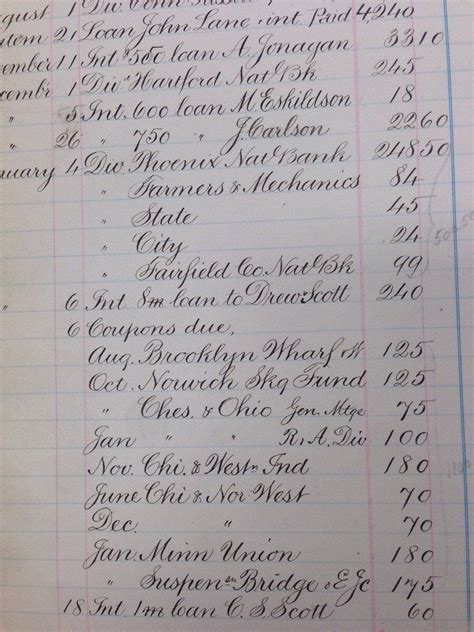 August 1 Div.
tem 21 Loan John Lane & int. Paid 4,240
ember 11 Int $550 loan A. Jonagan 33 10
cembr 1 Div Hartford Nat Bk 245
" 5 Int. 600 loan M Eskildson 18
26 " 750 " J. Carlson 22 60
nuary 4 Div. Phoenix Nat Bank 248 50
" Farmers & Mechanics 84
" State 45
" City 24
" Fairfield Co Nat Bk 99
" 6 Int 8m loan to Drew Scott 240
6 Coupons due,
Aug. Brooklyn Wharf 125
Oct. Norwich Skg Fund 125
" Ches. & Ohio Gen. Mtge 75
Jan " " R. A. Div 100
Nov. Chi. & Westn Ind 180
June Chi & Nor West 70
Dec. " 70
Jan. Minn Union 180
" Suspen Bridge & E Jc 175
18 Int 1m loan C. S. Scott 60